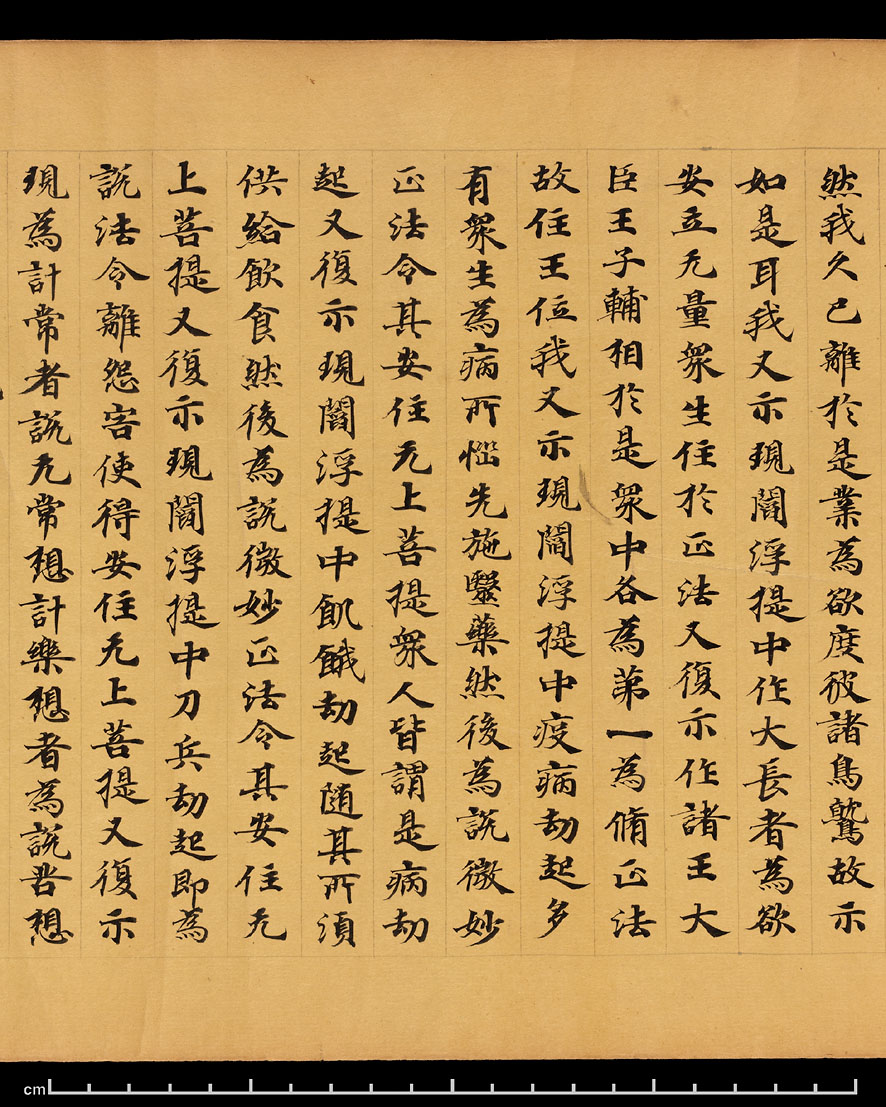 然我久已離於是業為欲度彼諸鳥鷲故示
如是耳我又示現閻浮提中作大長者為欲
安立无量衆生住於正法又復示作諸王大
臣王子輔相於是衆中各為苐一為脩正法
故住王位我又示現閻浮提中疫病劫起多
有衆生為病所惱先施醫藥然後為說微妙
正法令其安住无上菩提衆人皆謂是病劫
起又復示現閻浮提中飢餓劫起随其所須
供給飲食然後為說微妙正法令其安住无
上菩提又復示現閻浮提中刀兵劫起即為
說法令離怨害使得安住无上菩提又復示
現為計常者說无常想計樂想者為說苦想
cm